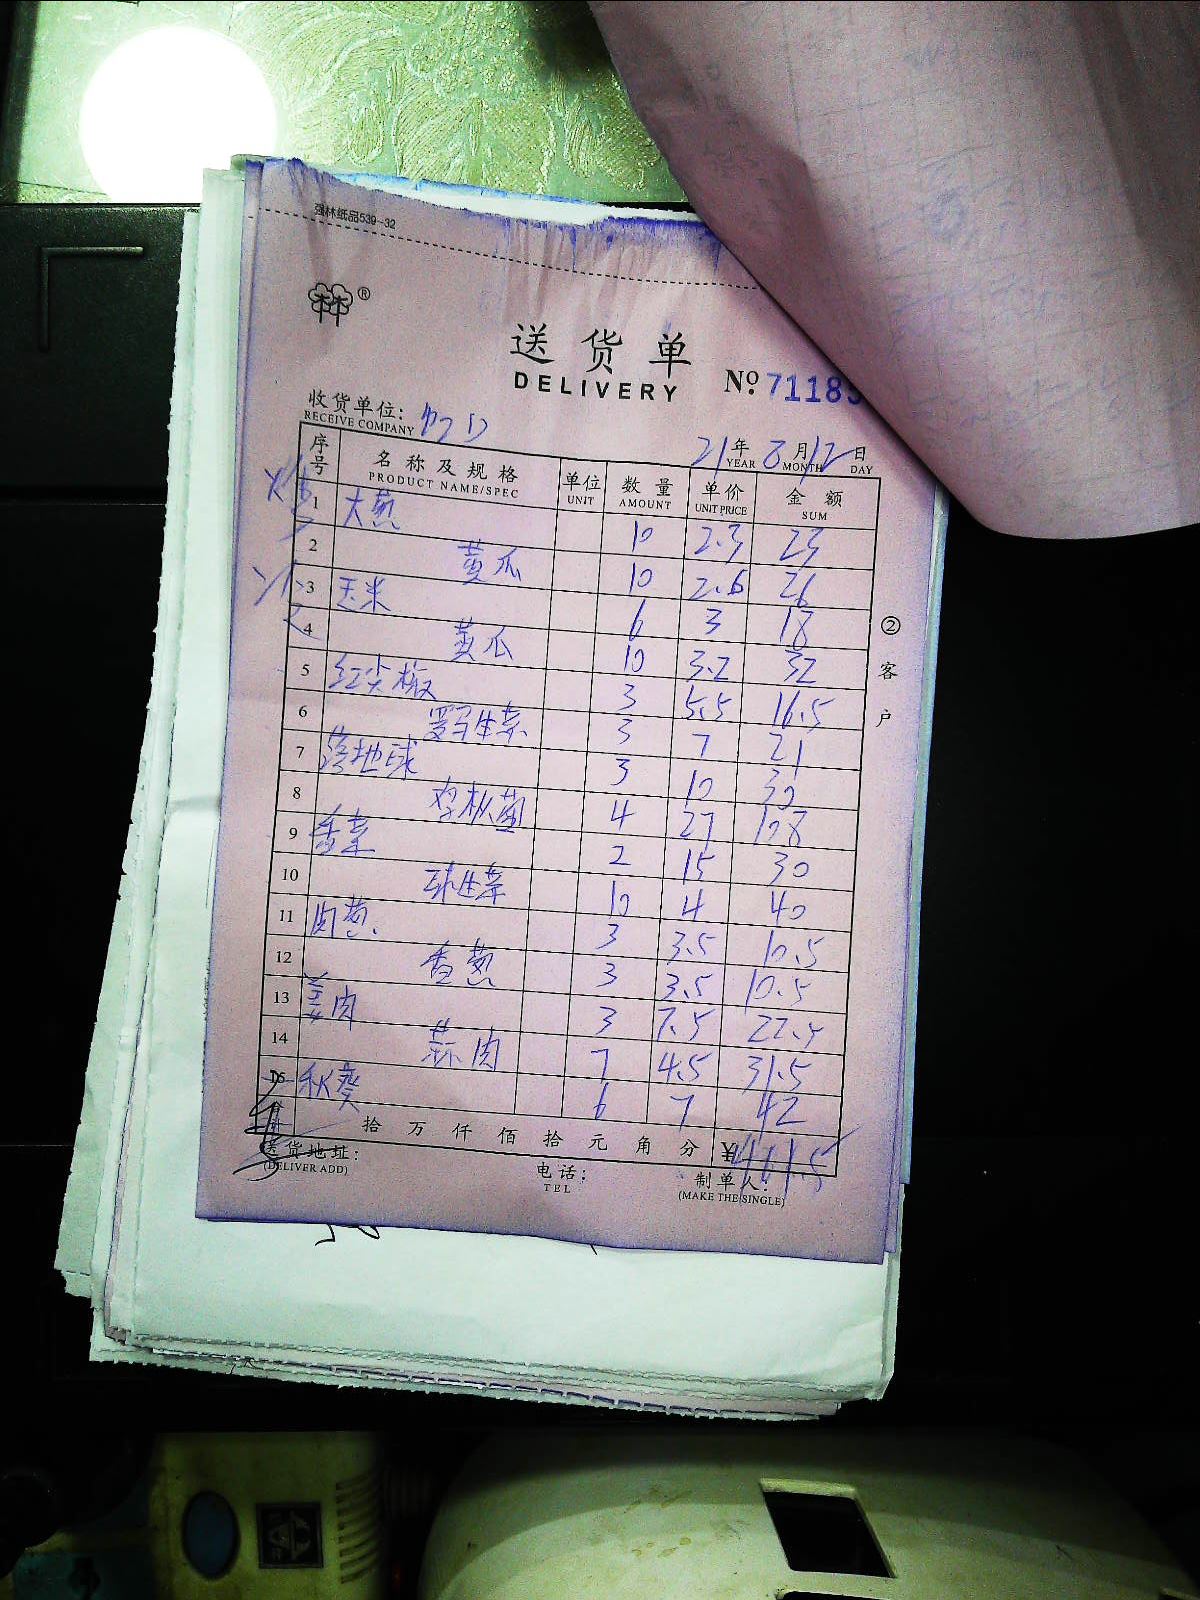 强林纸品539-32
林林®
送货单
DELIVERY
№ 71185
收货单位:
RECEIVE COMPANY
21年 8月 12日
YEAR MONTH DAY
序号 名称及规格 单位 数量 单价 金额
PRODUCT NAME/SPEC UNIT AMOUNT UNIT PRICE SUM
1 大葱 10 2.3 23
2 黄瓜 10 2.6 26
3 玉米 6 3 18
4 黄瓜 10 3.2 32
5 红尖椒 3 5.5 16.5
6 罗马生菜 3 7 21
7 落地球 3 10 30
8 鸡枞菌 4 27 108
9 香菜 2 15 30
10 球生菜 10 4 40
11 肉葱 3 3.5 10.5
12 香葱 3 3.5 10.5
13 姜肉 3 7.5 22.5
14 蒜肉 7 4.5 31.5
15 秋葵 6 7 42
拾 万 仟 佰 拾 元 角 分 461.5
送货地址:
(DELIVER ADD)
电话:
TEL
制单人:
(MAKE THE SINGLE)
②客户